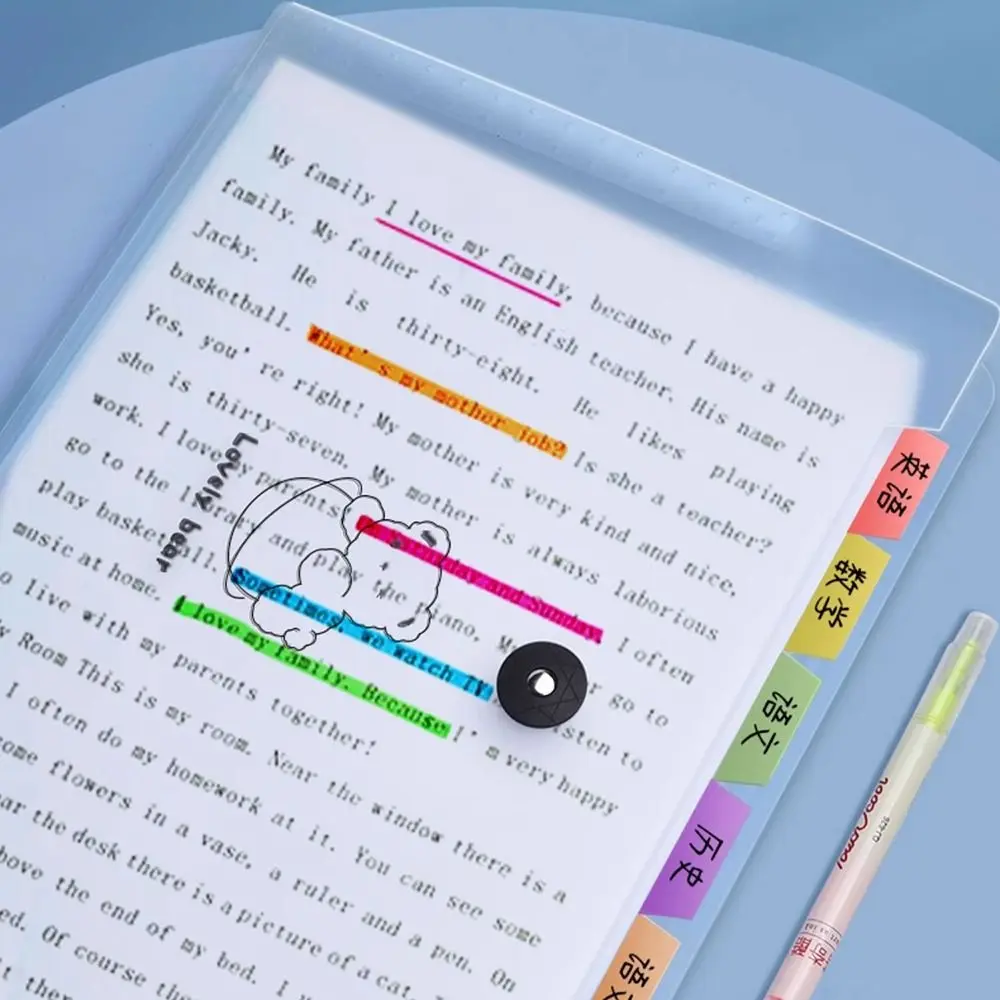 My family I love my family, because I have a happy
family. My father is an English teacher. His name is
Jacky. He is thirty-eight. He likes playing
basketball. What's my mother job? Is she a teacher?
Yes, you're right! My mother is very kind and nice,
she is thirty-seven. My mother is always laborious
work. I love my parents! Saturday and Sunday, I often
go to the library and play the piano, go to
play basketball. Sometimes, we watch TV, listen to
music at home. I love my family. Because I'm very happy
o live with my parents together!
y Room This is my room. Near the window there is a
I often do my homework at it. You can see some
ome flowers in a vase, a ruler and a pen. On
ar the desk there is a picture of a cat.
bove the end of my bed. I
ed. Of course the
Lovely bear
英语
数学
语文
历史
语文